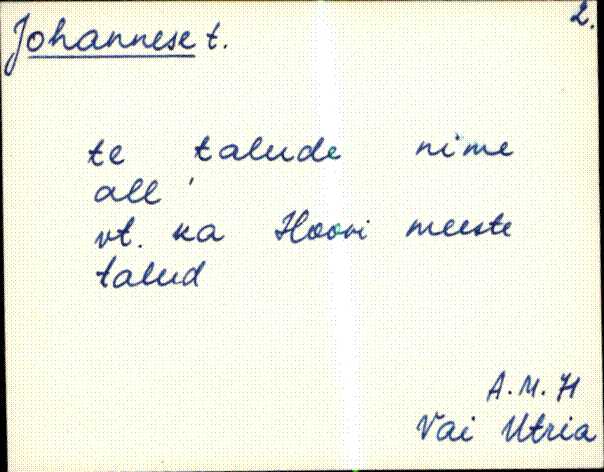 2.
Johannese t.
te talude nime
all'
vt. ka Hoovi meeste
talud
A.M. 71
Vai Utria